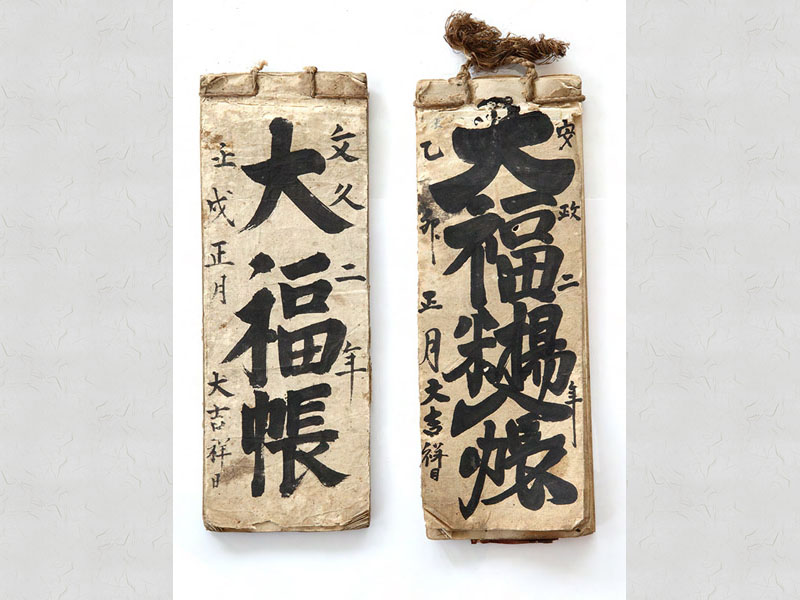 文久二年
大福帳
壬戌正月大吉祥日
安政二年
大福揚帳
乙卯正月大吉祥日